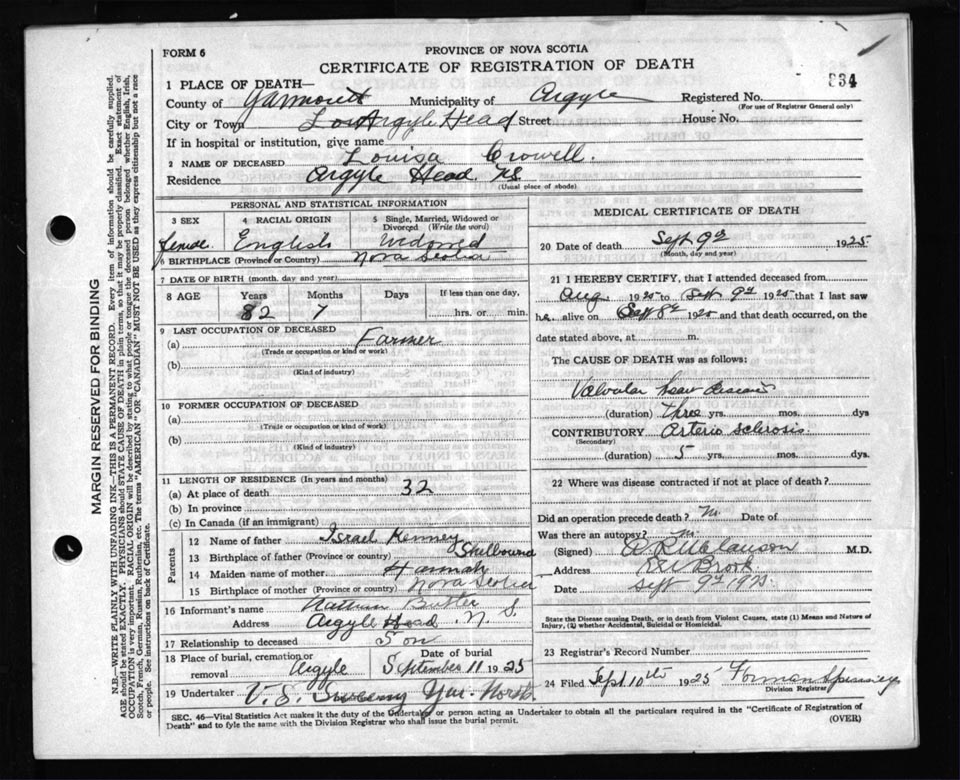 FORM 6
PROVINCE OF NOVA SCOTIA
CERTIFICATE OF REGISTRATION OF DEATH
334
1 PLACE OF DEATH—
County of Yarmouth Municipality of Argyle Registered No.
(For use of Registrar General only)
City or Town Argyle Head Street House No.
If in hospital or institution, give name
2 NAME OF DECEASED Louisa Crowell.
Residence Argyle Head N.S.
(Usual place of abode)
PERSONAL AND STATISTICAL INFORMATION
3 SEX 4 RACIAL ORIGIN 5 Single, Married, Widowed or
Divorced (Write the word)
female English Widowed
6 BIRTHPLACE (Province or Country) Nova Scotia
7 DATE OF BIRTH (month. day and year)
8 AGE Years Months Days If less than one day,
82 7 hrs. or min.
9 LAST OCCUPATION OF DECEASED
(a) Farmer
(Trade or occupation or kind of work)
(b)
(Kind of industry)
10 FORMER OCCUPATION OF DECEASED
(a)
(Trade or occupation or kind of work)
(b)
(Kind of industry)
11 LENGTH OF RESIDENCE (In years and months)
(a) At place of death 32
(b) In province
(c) In Canada (if an immigrant)
Parents
12 Name of father Israel Kenney
13 Birthplace of father (Province or country)
14 Maiden name of mother Hannah
15 Birthplace of mother (Province or country) Nova Scotia
16 Informant's name
Address Argyle Head N.S.
17 Relationship to deceased Son
18 Place of burial, cremation or removal Argyle Date of burial September 11 1925
19 Undertaker V. S. Sweeny Yar. North
MEDICAL CERTIFICATE OF DEATH
20 Date of death Sept 9th 1925
(Month, day and year)
21 I HEREBY CERTIFY, that I attended deceased from
Aug 1925 to Sept 9th 1925 that I last saw
her alive on Sept 8th 1925 and that death occurred, on the
date stated above, at m.
The CAUSE OF DEATH was as follows:
Valvular heart disease
(duration) three yrs. mos. dys
CONTRIBUTORY Arterio sclerosis.
(Secondary)
(duration) 5 yrs. mos. dys.
22 Where was disease contracted if not at place of death?
Did an operation precede death? No Date of
Was there an autopsy? No
(Signed) M.D.
Address Brook
Date Sept 9th 1925
State the Disease causing Death, or in death from Violent Causes, state (1) Means and Nature of
Injury, (2) whether Accidental, Suicidal or Homicidal.
23 Registrar's Record Number
24 Filed Sept. 10th 1925
Division Registrar
SEC. 46—Vital Statistics Act makes it the duty of the Undertaker or person acting as Undertaker to obtain all the particulars required in the "Certificate of Registration of
Death" and to fyle the same with the Division Registrar who shall issue the burial permit.
(OVER)
MARGIN RESERVED FOR BINDING
N.B.—WRITE PLAINLY WITH UNFADING INK—THIS IS A PERMANENT RECORD. Every item of information should be carefully supplied.
AGE should be stated EXACTLY. PHYSICIANS should STATE CAUSE OF DEATH in plain terms, so that it may be properly classified. Exact statement of
OCCUPATION is very important. RACIAL ORIGIN will be described by stating to what people or tongue the deceased person belonged whether English, Irish,
Scotch, French, German, Russian, Ruthenian, etc. The terms "AMERICAN" OR "CANADIAN" MUST NOT BE USED as they express citizenship but not a race
or people. See instructions on back of Certificate.